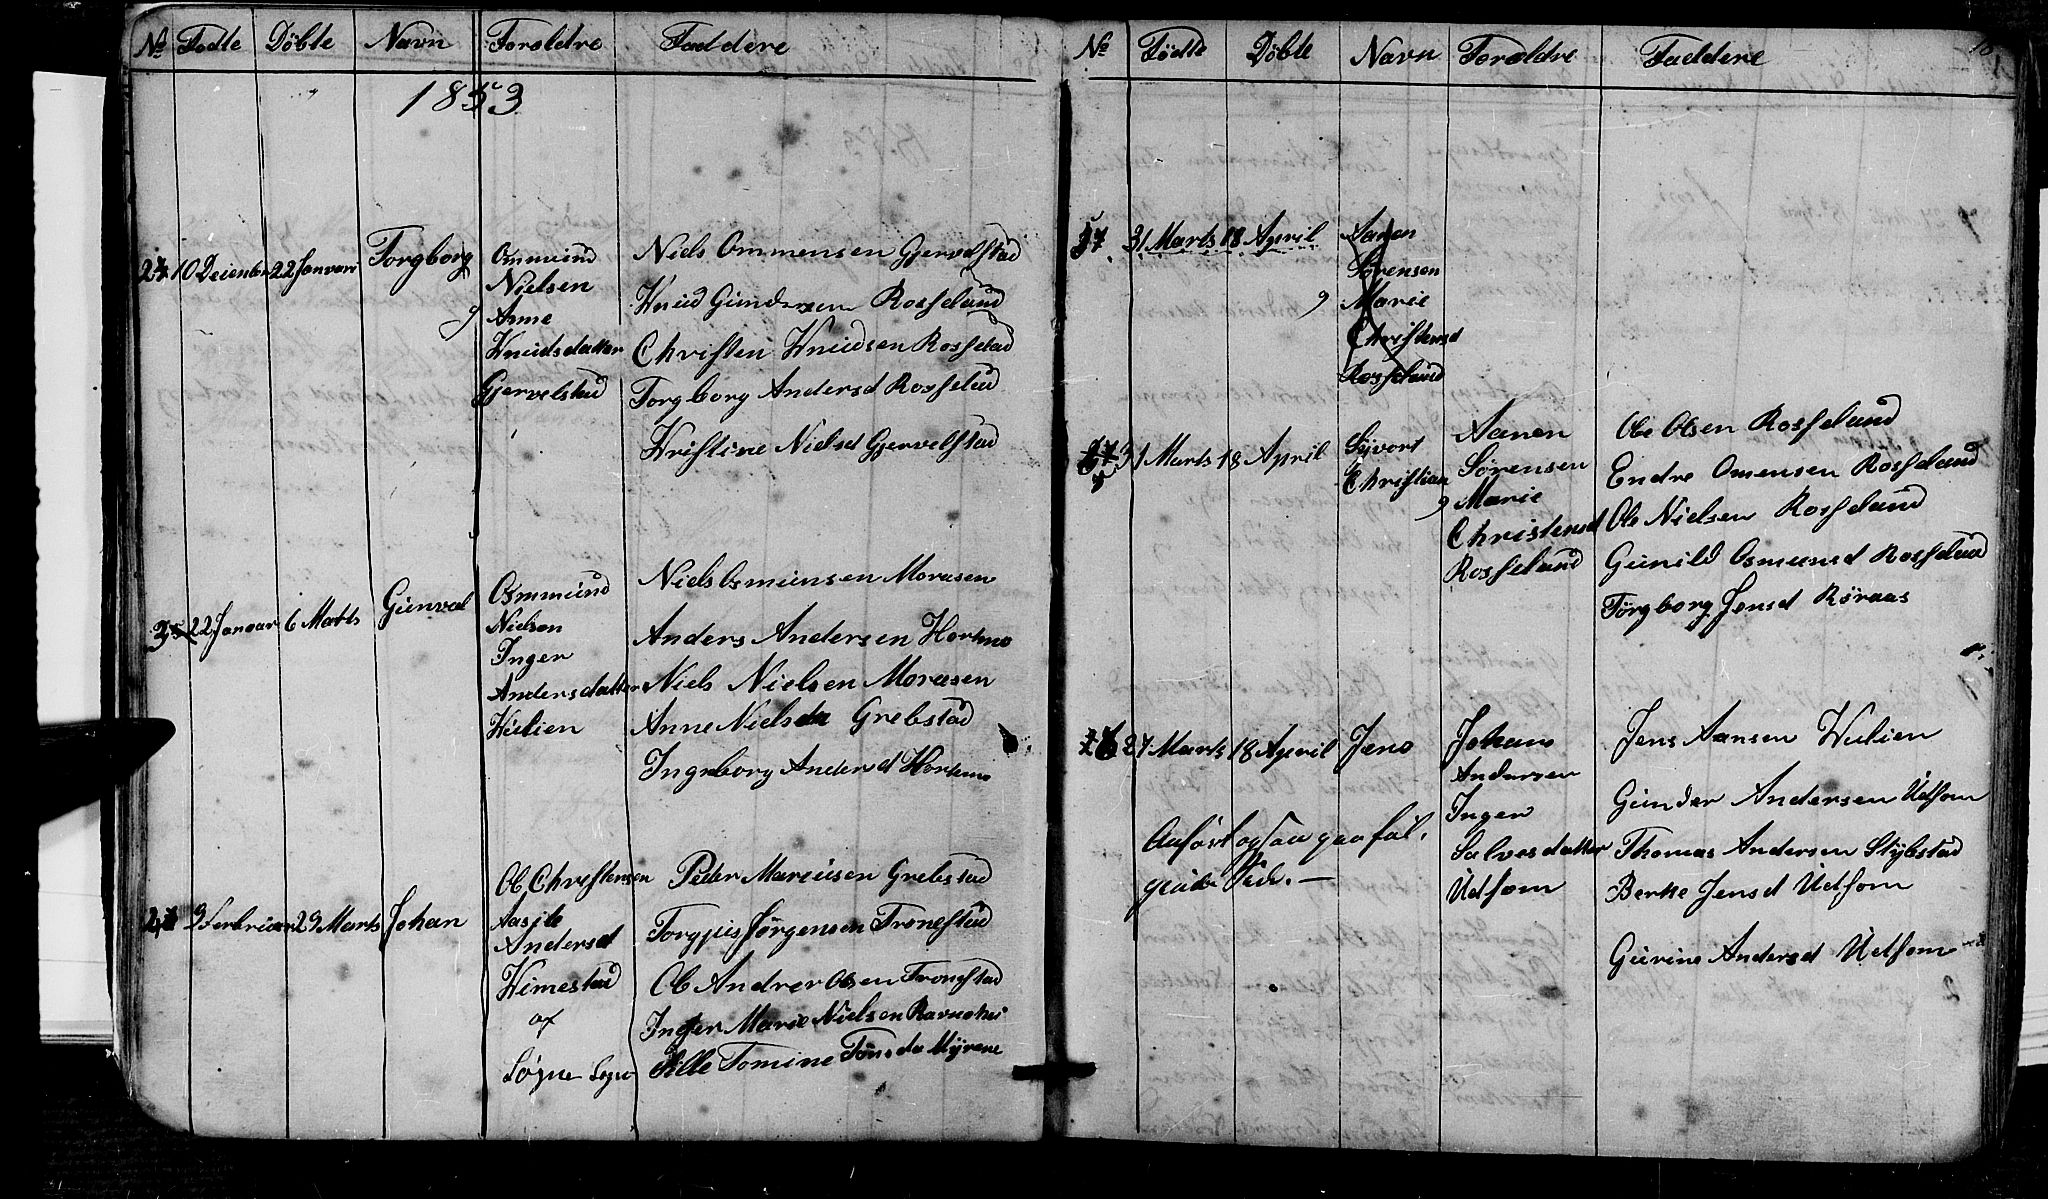 No Fødte Døbte Navn Foroldre Faddere
1853
2 10 Deiember 22 Janvari Torgborg
Ommund
Nielsen
og Anne
Knudsdatter
Gjervelstad
Niels Ommensen Gjervelstad
Knud Gundersen Rosseland
Christen Knudsen Rosselad
Torgborg Andersd Rosselad
Kristine Nielsd Gjervelstad
3 22 Januar 6 Marts Gunval
Osmmund
Nielsen
Inger
Andersdatter
Kulien
Niels Osmunsen Moraasen
Anders Andersen Hortemo
Niels Nielsen Morasen
Anne Nielsda Grebstad
Ingeborg Andersd Hortemo
9 Febriuar 29 Marts Johan
Ole Christensen
Aasjle
Andersd
Kimestad
af
Søgne Sogn
Peder Mariusen Grebstad
Torgjus Jørgensen Tronestad
Ole Andrer Olsen Tronstad
Inger Marie Nielsen Ravnehei
Sille Tomine Tønsda Myrene
No Fødte Døbte Navn Foroldre Faddere
31 Marts 18 April
Aanen
Sørensen
og Marie
Christensd
Rosseland
31 Marts 18 April Syvort
Christian
Aanen
Sørensen
og Marie
Christensd
Rosseland
Ole Olsen Rosseland
Endre Omensen Rosseland
Ole Nielsen Rosseland
Gunild Osmunsd Rosseland
Torgborg Jensd Røraas
6 27 Marts 18 April Jens
Johans
Andersen
Inger
Salvesdatter
Udsom
Jens Aansen Kulien
Gunder Andersen Udsom
Thomas Andersen Stybstad
Berte Jensd Udsom
Gurine Andersd Udsom
Anført ogsaa paa føl-
gende Side. —